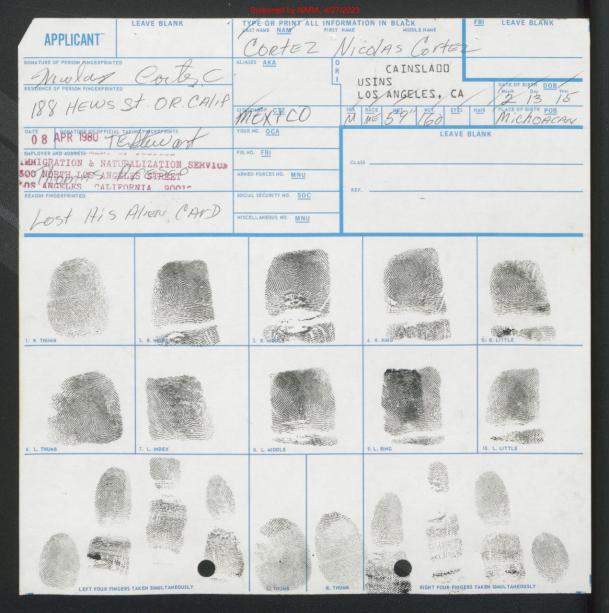 Screened by NARA, 4/27/2023
APPLICANT
LEAVE BLANK
TYPE OR PRINT ALL INFORMATION IN BLACK
LAST NAME NAM FIRST NAME MIDDLE NAME
FBI
LEAVE BLANK
CORTEZ Nicolas Cortez
SIGNATURE OF PERSON FINGERPRINTED
Nicolas Cortez C
ALIASES AKA
ORI
CAINSLA00
USINS
LOS ANGELES, CA
RESIDENCE OF PERSON FINGERPRINTED
188 HEWS St. OR. CALIF
DATE OF BIRTH DOB
Month Day Year
2 13 15
CTZ
MEXICO
SEX RACE HGT. WGT. EYES HAIR
M 5'9" 160
PLACE OF BIRTH POB
Michoacan
DATE SIGNATURE OF OFFICIAL TAKING FINGERPRINTS
08 APR 1980
YOUR NO. OCA
LEAVE BLANK
EMPLOYER AND ADDRESS
IMMIGRATION & NATURALIZATION SERVICE
300 NORTH LOS ANGELES STREET
LOS ANGELES, CALIFORNIA 90012
FBI NO. FBI
CLASS
ARMED FORCES NO. MNU
REF.
REASON FINGERPRINTED
Lost His Alien CARD
SOCIAL SECURITY NO. SOC
MISCELLANEOUS NO. MNU
1. R. THUMB
2. R. INDEX
3. R. MIDDLE
4. R. RING
5. R. LITTLE
6. L. THUMB
7. L. INDEX
8. L. MIDDLE
9. L. RING
10. L. LITTLE
LEFT FOUR FINGERS TAKEN SIMULTANEOUSLY
L. THUMB
R. THUMB
RIGHT FOUR FINGERS TAKEN SIMULTANEOUSLY